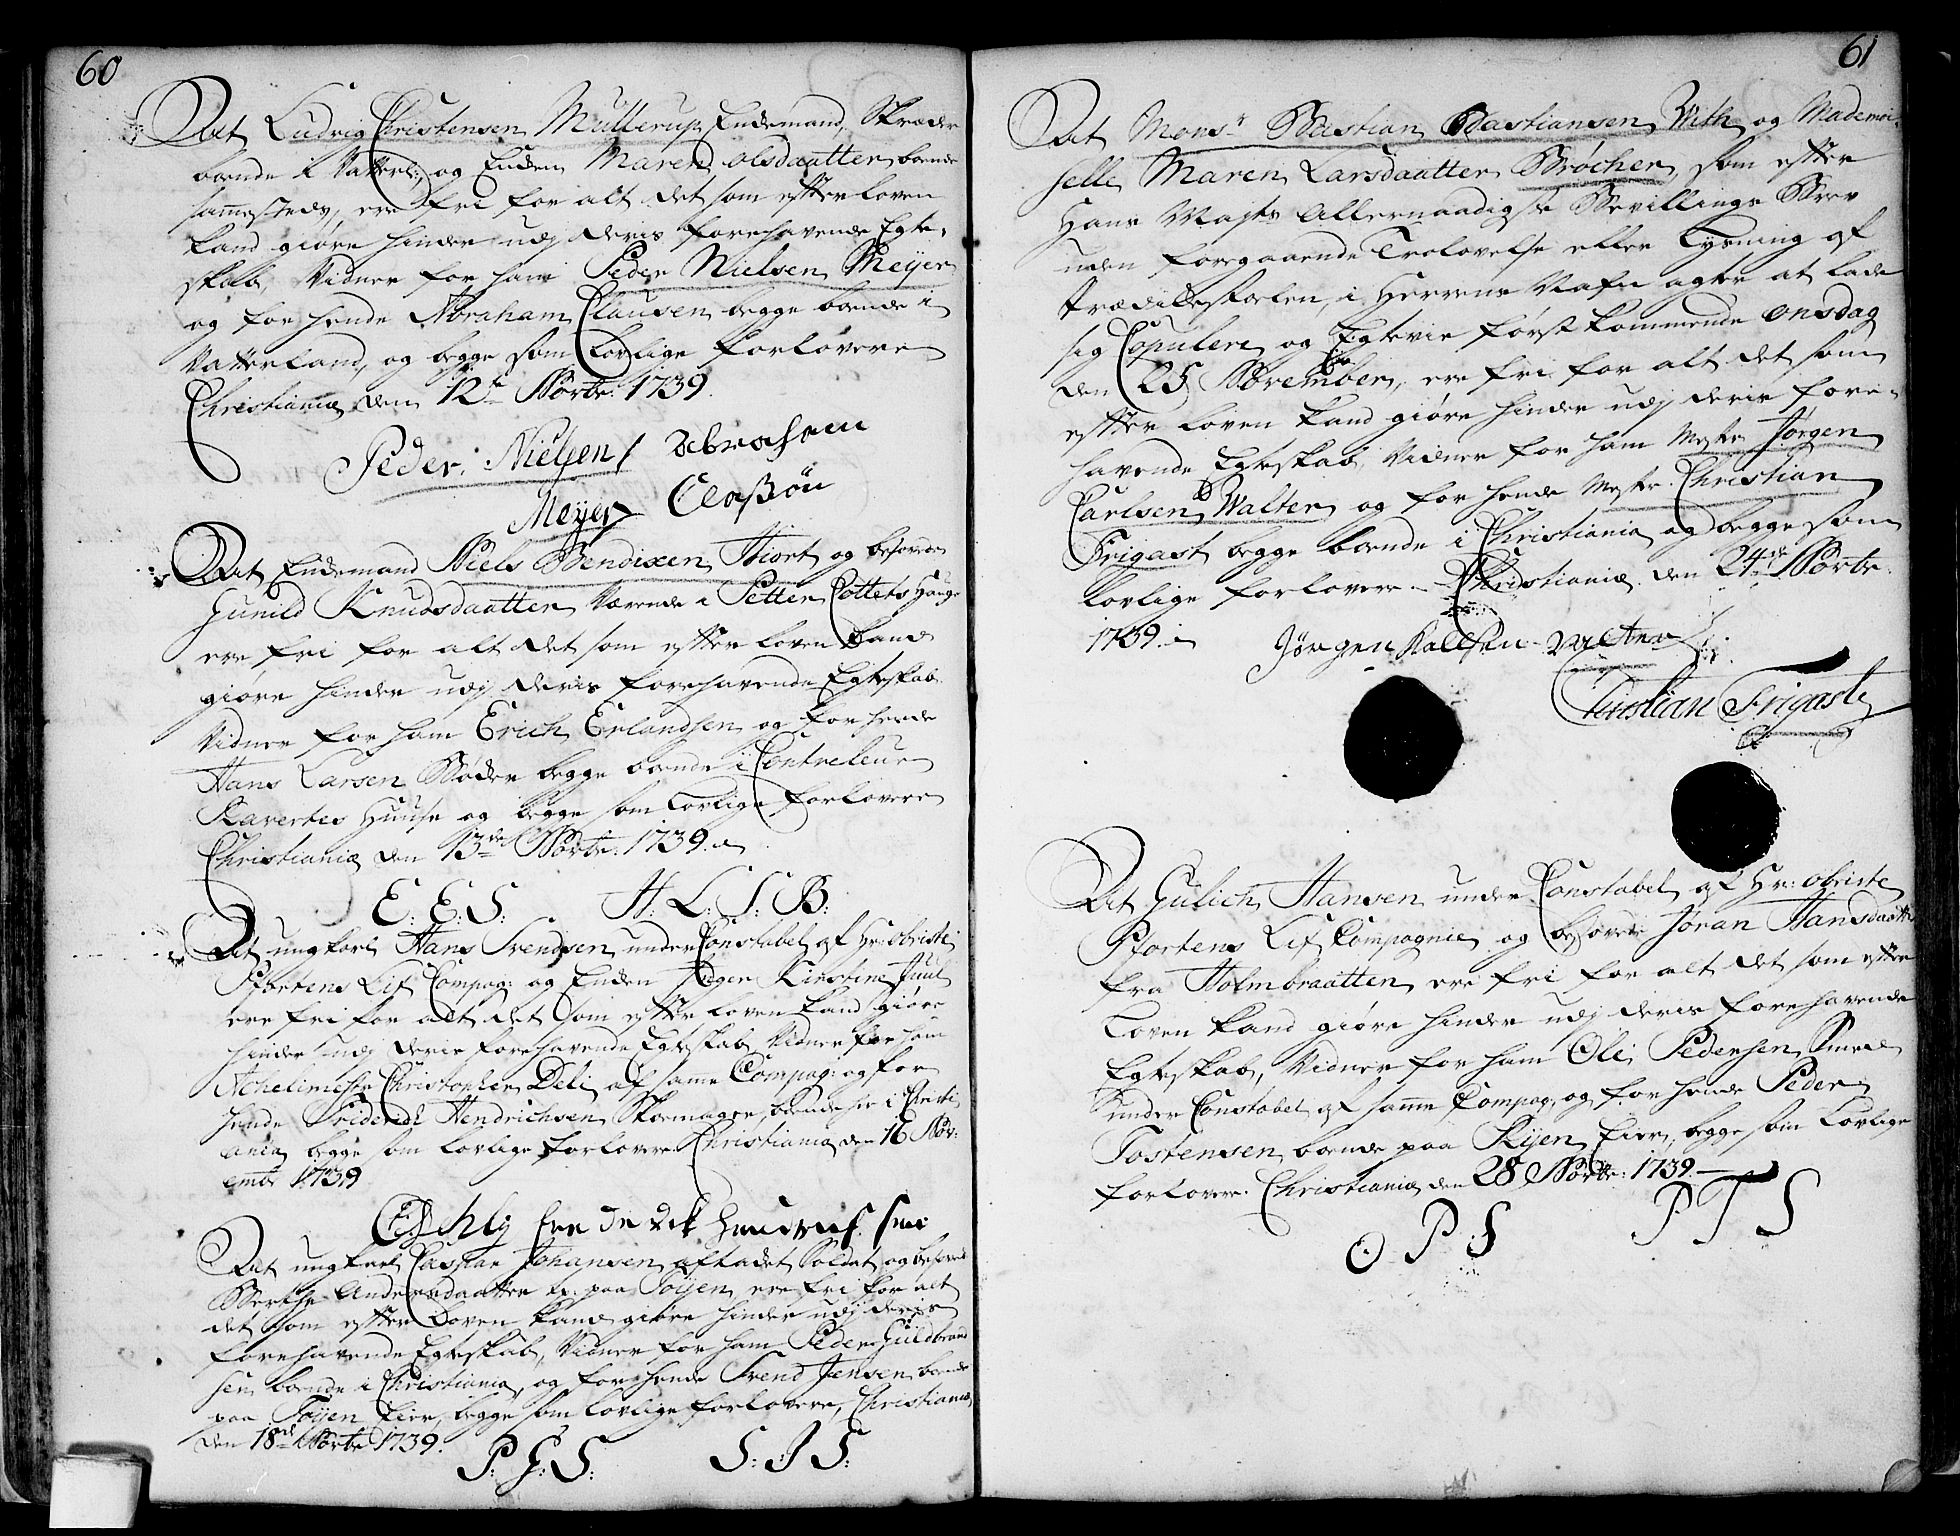 60
At Ludvig Christensen Mullerup Enckemand, Skræder
boende i Vatterl: og Encken Maren olsdaatter boende
sammesteds, ere fri for alt det som efter loven
kand giøre hinder udj deris forehavende Egte-
skab, Vidner for ham Peder Nielsen Meyer
og for hende Abraham Clausen begge boende i
Vatterland, og begge som lovlige forlovere
Christiania den 12te Novbr: 1739.
Peder: Nielsen Abraham
Meyer Claßøn
At Enckemand Niels Bendixen Hiort og beforede
Gunild Knudsdaatter Værende i Petter Cottets Hauge
ere fri for alt det som efter loven kand
giøre hinder udj deris forehavende Egteskab
Vidner for ham Erich Erlandsen og for hende
Hans Larsen Bøder begge boende i Contreleur
Ravertes Huuse og begge som lovlige forlovere
Christiania den 13de Novbr: 1739.
E: E: S: H: L: S: B:
At ungkarl Hans Svendsen under Constabel af Hr: obriste
Pfortens Lif Compag: og Encken Inger Kirstine Juul
ere fri for alt det som efter loven kand giøre
hinder udj deris forehavende Egteskab, Vidner for ham
Christopher Deli af samme Compag: og for
hende Friderich Hendrichsen Skoemager, boende her i Christi
ania, begge som lovlige forlovere Christiania den 16 Nov:
embr 1739
At ungkarl Casper Johansen aftacket Soldat og beforede
Berthe Andersdaatter paa Tøyen, ere fri for alt
det som efter Loven kand giøre hinder udj deris
forehavende Egteskab, Vidner for ham Peder Guldbrand
sen boende i Christiania, og for hende Svend Jensen boende
paa Tøyen Eier, begge som lovlige forlovere, Christiania
den 18de Novbr 1739.
P: G: S: S: I: S:
61
At Monsr Bastian Bastiansen With og Mademoi-
selle Maren Larsdaatter Brøcher, som efter
Hans Mayts Allernaadigste Bevillings Brev
uden foregaaende Trolovelse eller Lysning af
Prædikestoelen, i Herrens Nafn agter at lade
sig Copulere og Egtevie førstkommende onsdag
den 25 November, ere fri for alt det som
efter loven kand giøre hinder udj deris fore-
havende Egteskab, Vidner for ham Mestr Jørgen
Carlsen Walter og for hende Mestr. Christian
Frigast begge boende i Christiania og begge som
lovlige forlovere - Christiania den 24de Novbr.
1739.
Jørgen Kallsen Valter
Christian Frigast
At Gulich Hansen under Constabel af Hr: obriste
Pfortens Lif Compagnie og beforede Jøran Hansdaatter
fra Holmbraatten ere fri for alt det som efter
Loven kand giøre hinder udj deris forehavende
Egteskab, Vidner for ham Ole Pedersen Smed
under Constabel af samme Compag, og for hende Peder
Tostensen boende paa Ryen Eier, begge som Lovlige
forlovere. Christiania den 28 Novbr: 1739.
O P S P T S